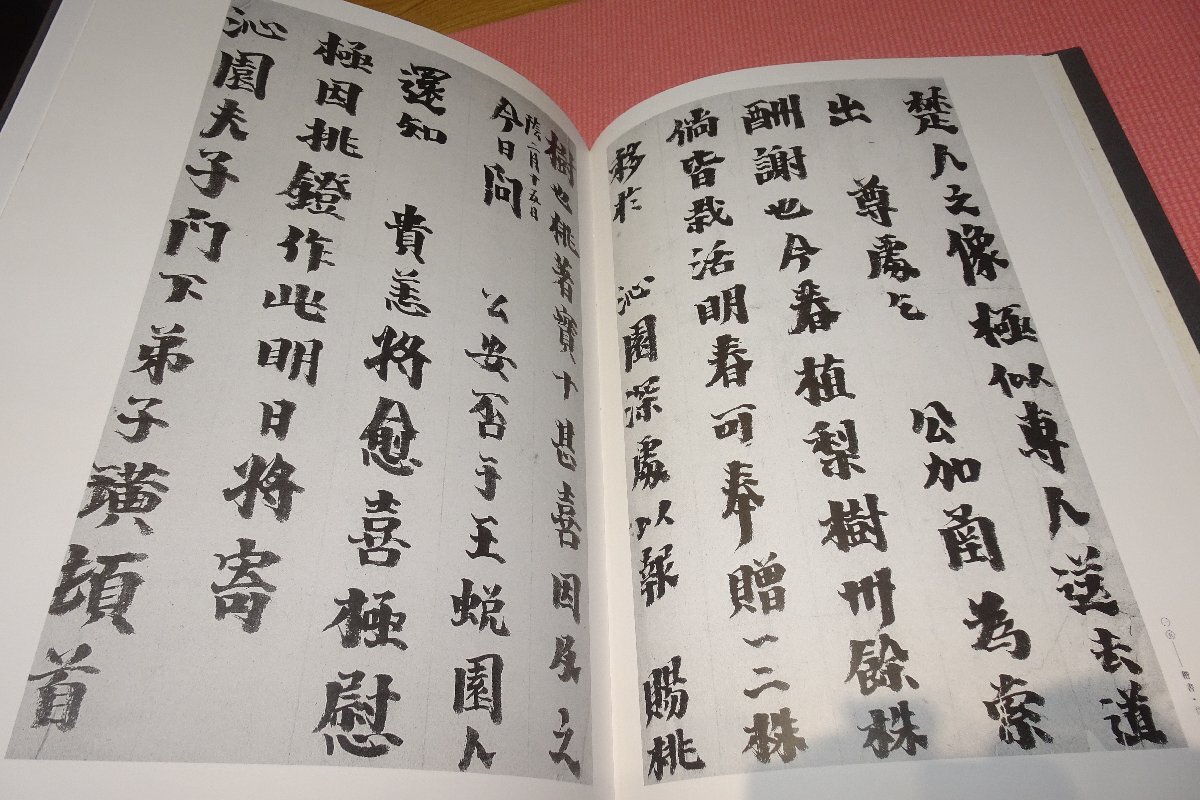 楚人之像極似専人送去道
出 尊處乞 公加函為索
酬謝也今春植梨樹卅餘株
倘皆栽活明春可奉贈一二株
移於 沁園深處以報 賜桃
樹也桃著實十甚喜因居之
陰二月十五日
今日問 公安否于王蜕園人
還知 貴恙將愈喜極慰
極因挑鐙作此明日將寄
沁園夫子门下弟子璜頓首